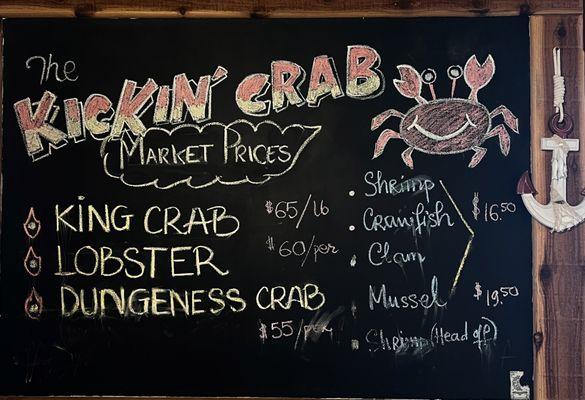 The
KICKIN' CRAB
MARKET PRICES
KING CRAB $65/lb
LOBSTER $60/per
DUNGENESS CRAB
$55/per
Shrimp
Crawfish $16.50
Clam
Mussel $19.50
Shrimp (Head off)